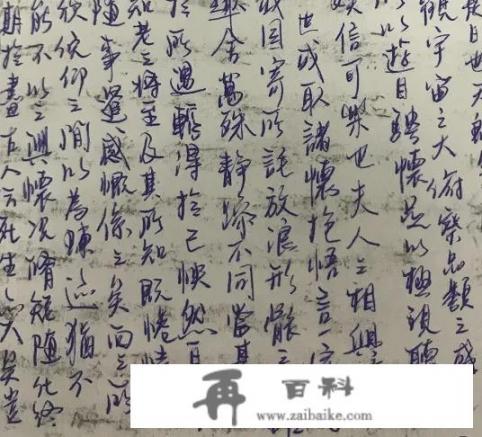 是日也天朗
觀宇宙之大俯察品類之盛
以遊目騁懷足以極視聽
娛信可樂也夫人之相與
世或取諸懷抱悟言一室
或因寄所託放浪形骸之
舍萬殊靜躁不同當其
於所遇暫得於己快然自
知老之將至及其所知既惓情
隨事遷感慨係之矣向之所
欣俛仰之間以為陳迹猶不
能不以之興懷況脩短隨化終
期於盡古人云死生亦大矣豈
再百科
www.zaibaike.com